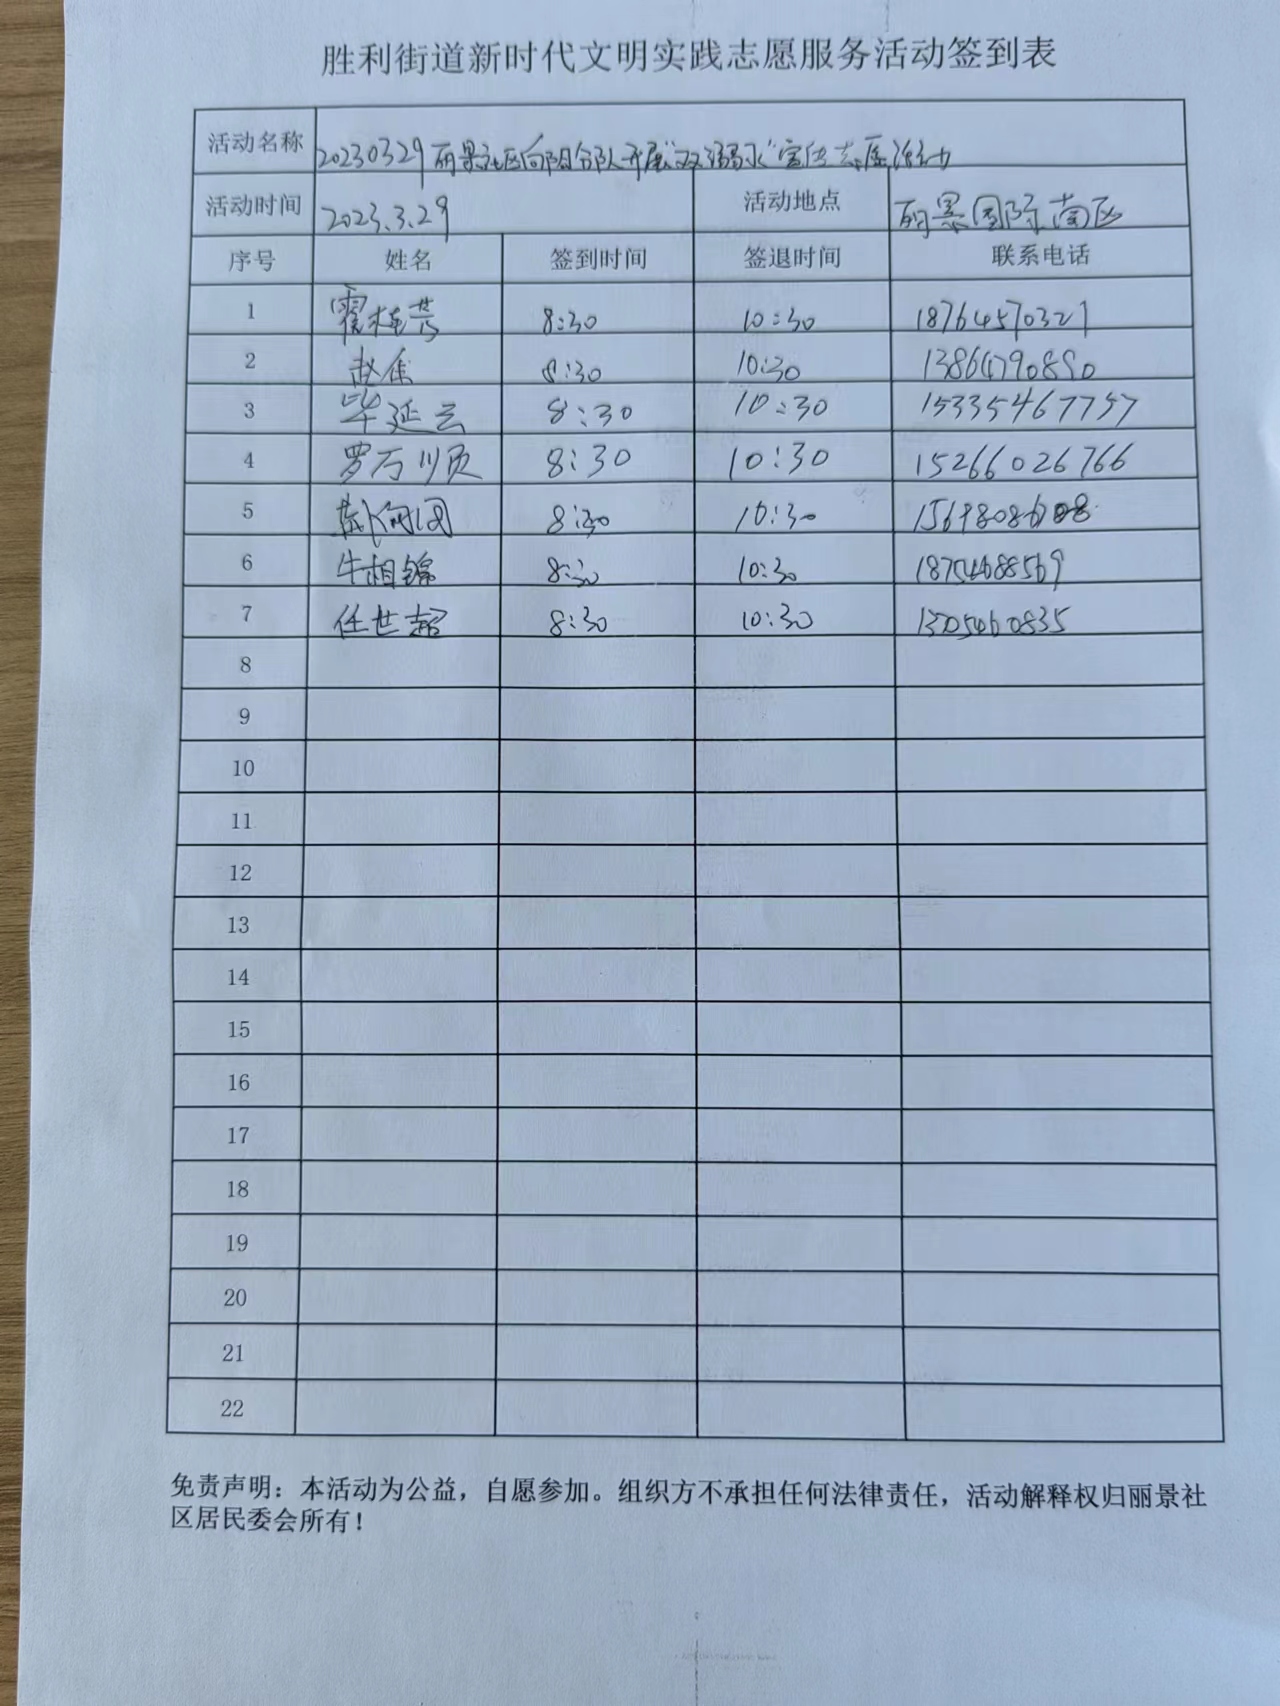 胜利街道新时代文明实践志愿服务活动签到表
活动名称 20230329丽景社区向阳分队开展“双 宣传志愿活动
活动时间 2023.3.29 活动地点 丽景国际南区
序号 姓名 签到时间 签退时间 联系电话
1 霍桂芳 8:30 10:30 18764570321
2 赵 8:30 10:30 13864790890
3 毕延云 8:30 10:30 15335467757
4 罗万顺 8:30 10:30 15266026766
5 8:30 10:30
6 牛相锦 8:30 10:30 18754688569
7 任世超 8:30 10:30
8
9
10
11
12
13
14
15
16
17
18
19
20
21
22
免责声明：本活动为公益，自愿参加。组织方不承担任何法律责任，活动解释权归丽景社
区居民委会所有！